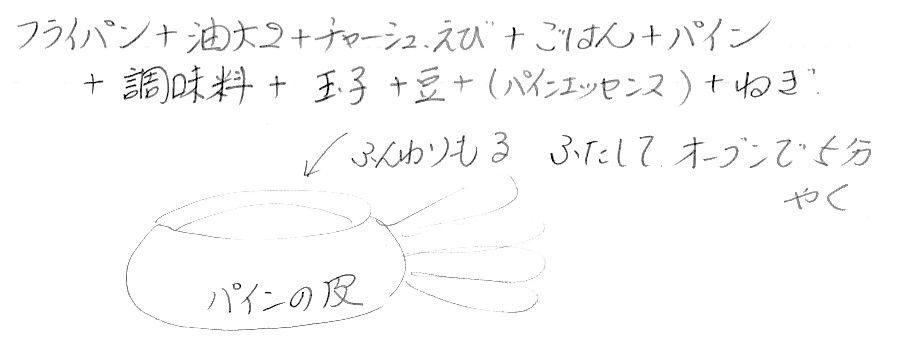 フライパン+油大2+チャーシュ.えび+ごはん+パイン
+調味料+玉子+豆+(パインエッセンス)+ねぎ.
ふんわりもる ふたして.オーブンで5分
やく
パインの皮